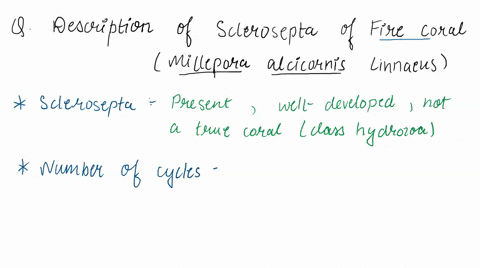 Q. Description of Sclerosepta of Fire coral
(Millepora alcicornis Linnaeus)
* Sclerosepta - Present, well-developed, not
a true coral (class hydrozoa)
* Number of cycles -